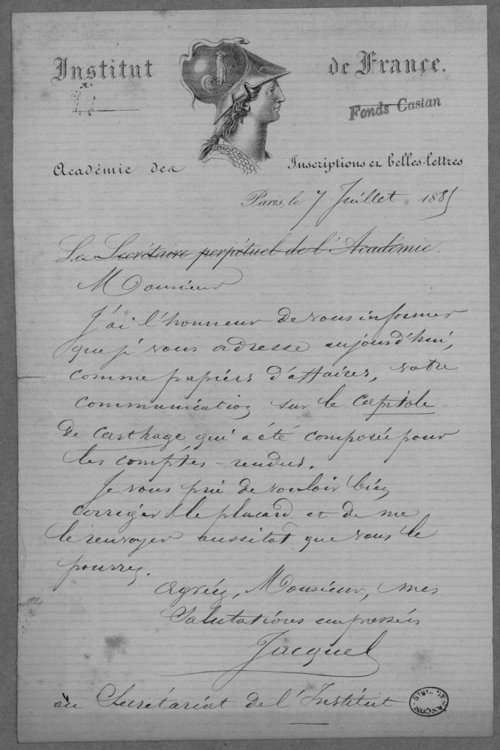 Institut de France.
Fonds Casian
Académie des Inscriptions et belles-lettres
Paris, le 7 Juillet 1885
Le Secrétaire perpétuel de l'Académie.
Monsieur
J'ai l'honneur de vous informer
que je vous adresse aujourd'hui,
comme papiers d'affaires, votre
communication sur le Capitole
de Carthage qui a été composée pour
les comptes-rendus.
Je vous prie de vouloir bien
corriger le placard et de me
le renvoyer aussitot que vous le
pourrez.
Agréez, Monsieur, mes
Salutations empressées
Jacquel
au Secrétariat de l'Institut